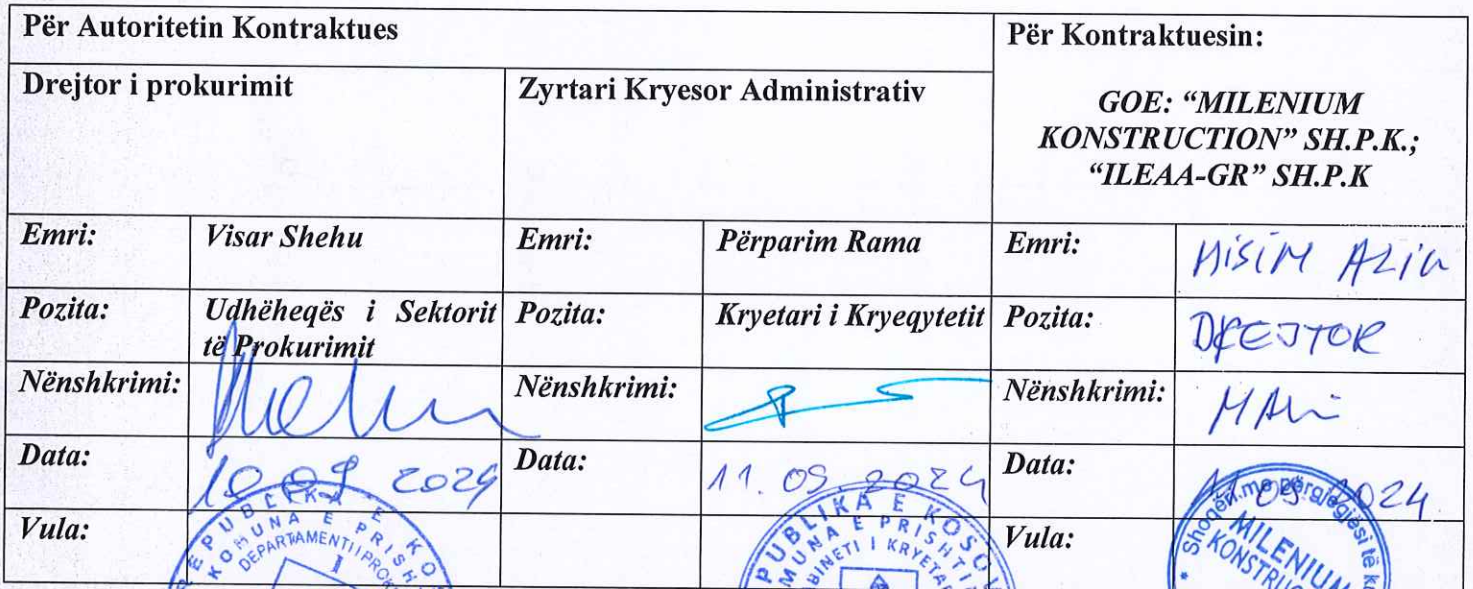 Për Autoritetin Kontraktues
Për Kontraktuesin:
Drejtor i prokurimit
Zyrtari Kryesor Administrativ
GOE: “MILENIUM
KONSTRUCTION” SH.P.K.;
“ILEAA-GR” SH.P.K
Emri: Visar Shehu Emri: Përparim Rama Emri: HISIM ALIU
Pozita: Udhëheqës i Sektorit
të Prokurimit
Pozita: Kryetari i Kryeqytetit Pozita: DREJTOR
Nënshkrimi: Nënshkrimi: Nënshkrimi:
Data: 10.09 2024 Data: 11.09.2024 Data: 11.09.2024
Vula: Vula:
REPUBLIKA E KO
KOMUNA E PRISH
DEPARTAMENTI I PROK
PUBLIKA E KOSOV
MUNA E PRISHTIN
BINETI I KRYETAR
Shoqëri me përgjegjësi të
MILENIUM
KONSTRUC